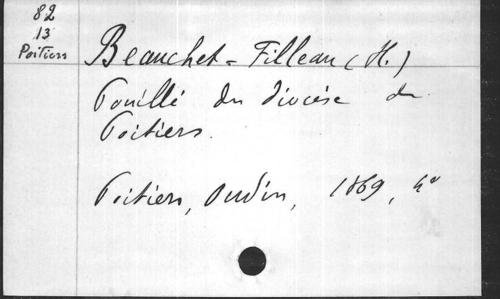 82
13
Poitiers
Beauchet-Filleau (H.)
Pouillé du diocèse de
Poitiers.
Poitiers, Oudin, 1869, 4°